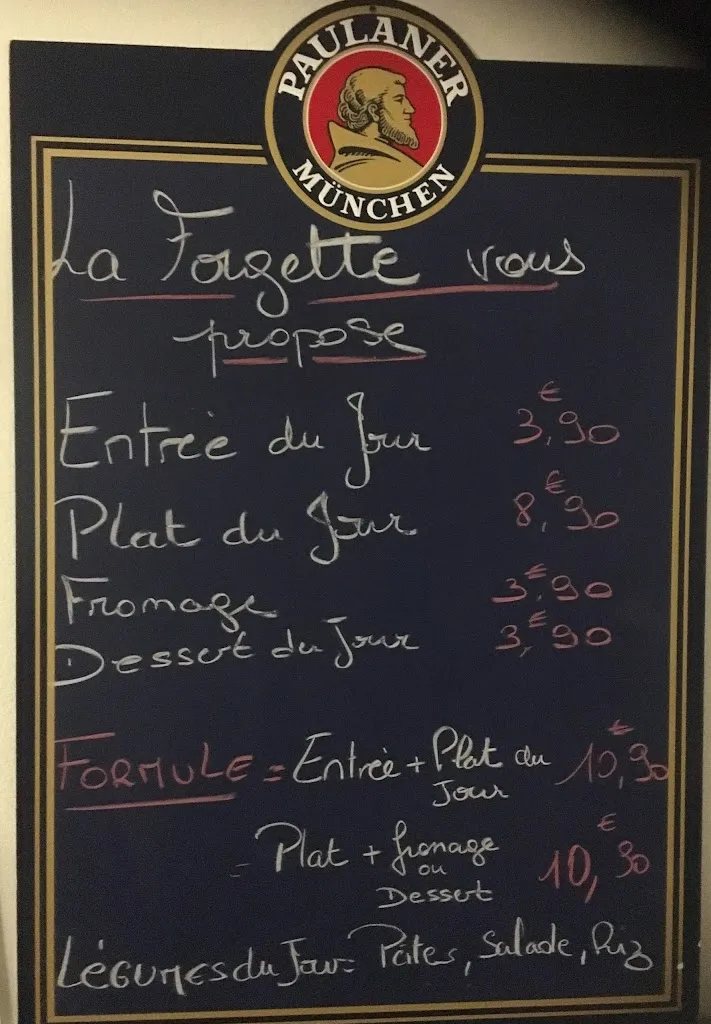 PAULANER
MÜNCHEN
La Forgette vous
propose
Entrée du Jour 3,€90
Plat du Jour 8,€90
Fromage 3,€90
Dessert du Jour 3,€90
FORMULE = Entrée + Plat du 10,€90
Jour
= Plat + fromage 10,€90
ou
Dessert
LÉGUMES du Jour = Pâtes, Salade, Riz